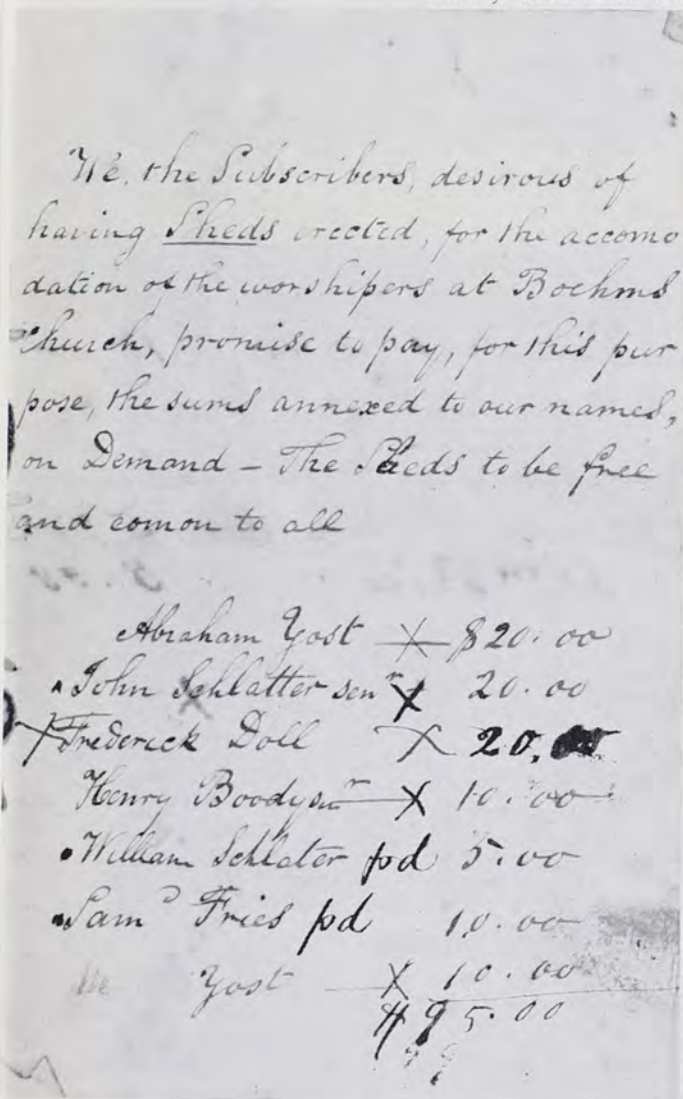 We, the Subscribers, desirous of
having Sheds erected, for the accomo
dation of the worshipers at Boehms
Church, promise to pay, for this pur
pose, the sums annexed to our names,
on Demand – The Sheds to be free
and comon to all
Abraham Yost X $20.00
John Schlatter senr X 20.00
X Frederick Doll X 20.
Henry Boody senr X 10.00
William Schlater pd 5.00
Saml Fries pd 10.00
Yost X 10.00
$95.00